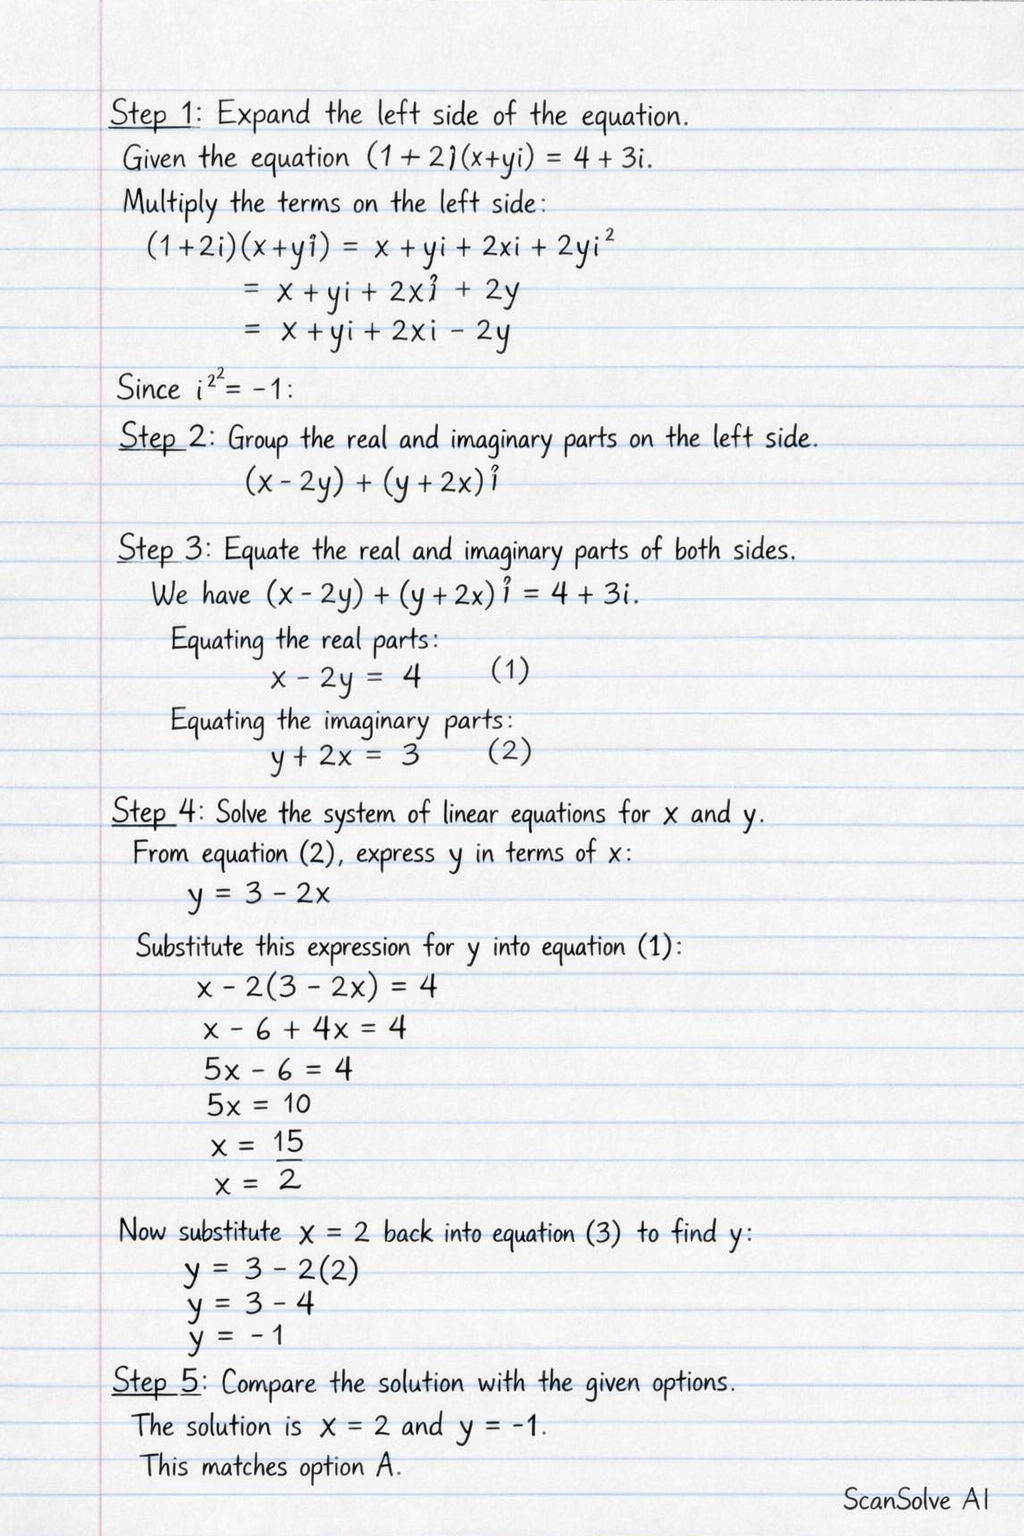 Step 1: Expand the left side of the equation.
Given the equation (1 + 2î(x+yi) = 4 + 3i.
Multiply the terms on the left side:
(1+2i)(x+yî) = x + yi + 2xi + 2yi²
= x + yi + 2xî + 2y
= x + yi + 2xi - 2y
Since i²² = -1:
Step 2: Group the real and imaginary parts on the left side.
(x - 2y) + (y + 2x) î
Step 3: Equate the real and imaginary parts of both sides.
We have (x - 2y) + (y + 2x) î = 4 + 3i.
Equating the real parts:
x - 2y = 4 (1)
Equating the imaginary parts:
y + 2x = 3 (2)
Step 4: Solve the system of linear equations for x and y.
From equation (2), express y in terms of x:
y = 3 - 2x
Substitute this expression for y into equation (1):
x - 2(3 - 2x) = 4
x - 6 + 4x = 4
5x - 6 = 4
5x = 10
x = 15
x = 2
Now substitute x = 2 back into equation (3) to find y:
y = 3 - 2(2)
y = 3 - 4
y = -1
Step 5: Compare the solution with the given options.
The solution is x = 2 and y = -1.
This matches option A.
ScanSolve AI